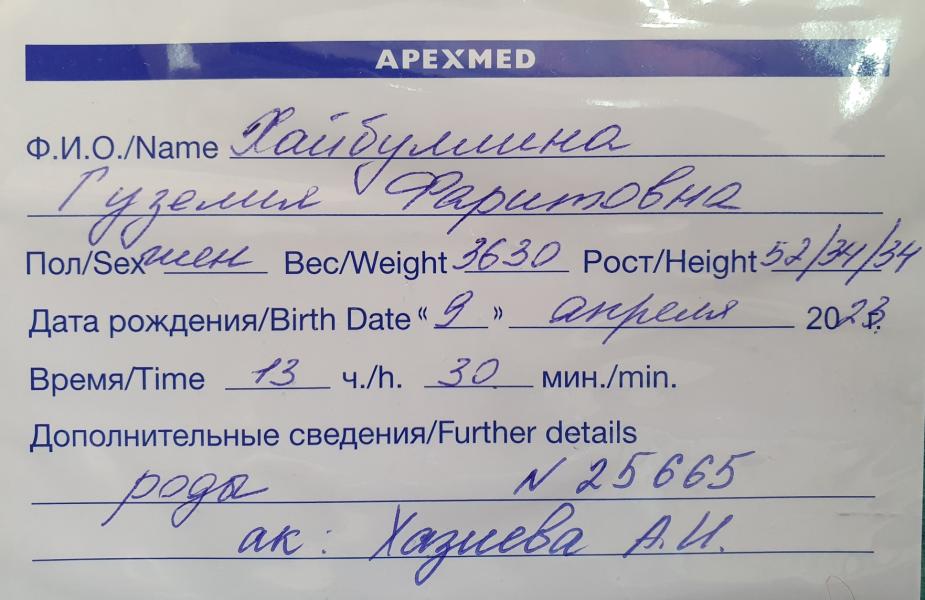 APEXMED
Ф.И.О./Name Хайбуллина
Гузелия Фаритовна
Пол/Sex жен Вес/Weight 3630 Рост/Height 52/34/34
Дата рождения/Birth Date “ 9 ” апреля 2023 г.
Время/Time 13 ч./h. 30 мин./min.
Дополнительные сведения/Further details
роды N 25665
ак: Хазиева А.И.